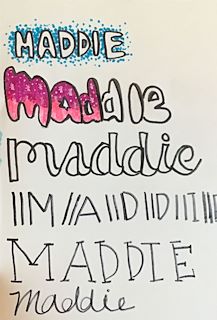 MADDIE
maddie
maddie
MADDIE
MADDIE
Maddie